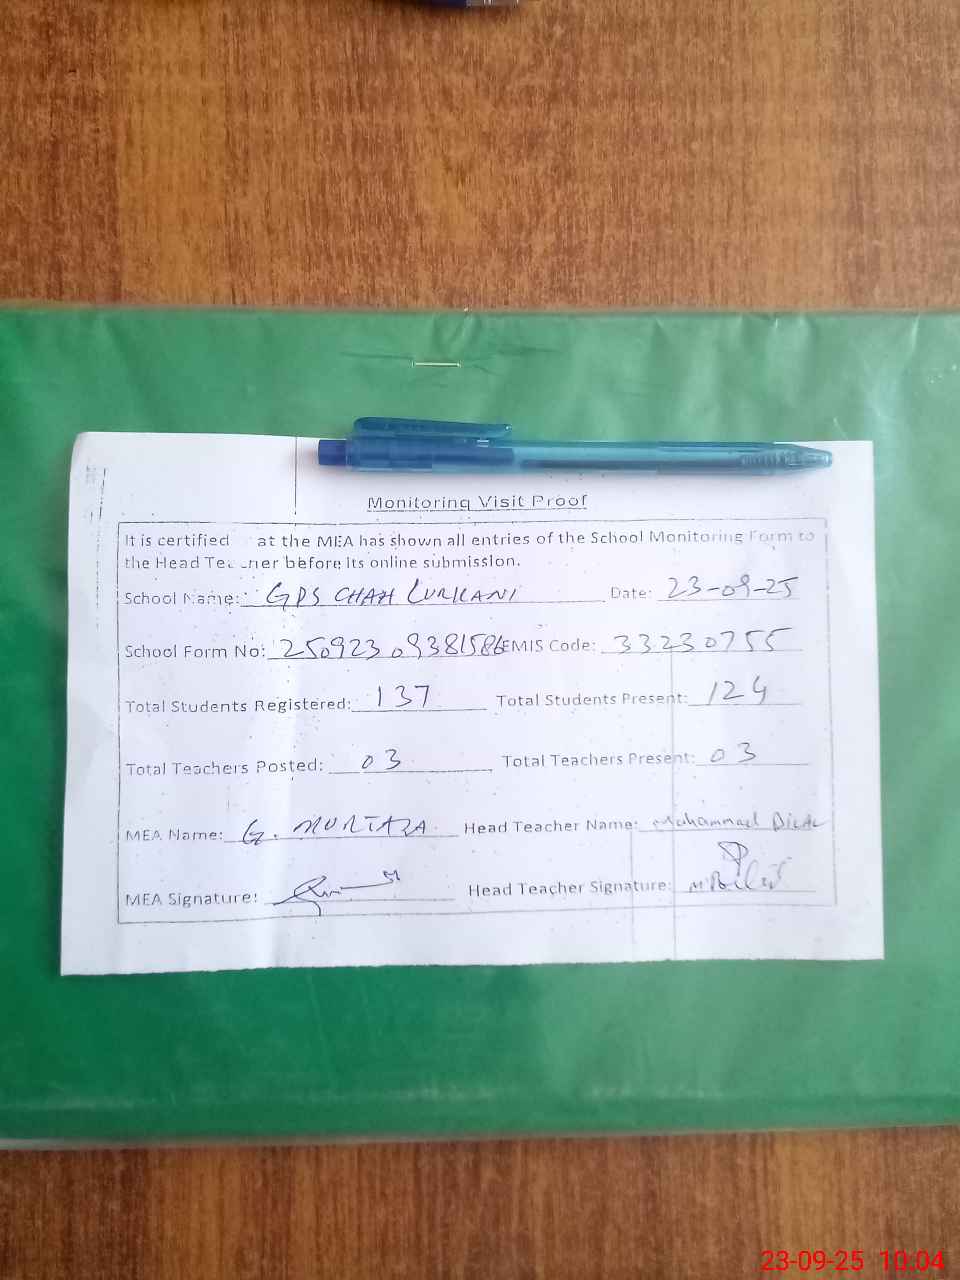 Monitoring Visit Proof
It is certified at the MEA has shown all entries of the School Monitoring Form to
the Head Teacher before its online submission.
School Name: GPS CHAH LURKANI Date: 23-09-25
School Form No: 250923 09381586 EMIS Code: 33230755
Total Students Registered: 137 Total Students Present: 124
Total Teachers Posted: 03 Total Teachers Present: 03
MEA Name: G. MURTAZA Head Teacher Name: Mohammad Bilal
MEA Signature: Head Teacher Signature: M Bilal
23-09-25 10:04